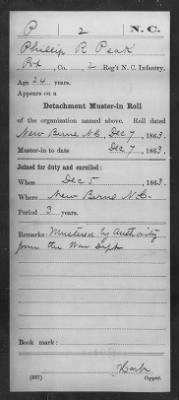 P 2 N. C.
Phillip R Peak
Pvt, Co. , 2 Reg't N. C. Infantry.
Age 24 years.
Appears on a
Detachment Muster-in Roll
of the organization named above. Roll dated
New Berne N.C., Dec 7, 1863.
Muster-in to date Dec 7, 1863.
Joined for duty and enrolled:
When Dec 5, 1863.
Where New Berne N.C.
Period 3 years.
Remarks: Mustered by authority
from the War Dept
Book mark:
(337) Copyist.